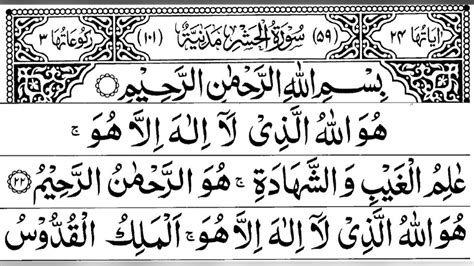 اٰيَاتُهَا ٢٤ (٥٩) سُوْرَةُ الْحَشْرِ مَدَنِيَّةٌ (١٠١) رُكُوْعَاتُهَا ٣
بِسْمِ اللّٰهِ الرَّحْمٰنِ الرَّحِيْمِ
هُوَ اللّٰهُ الَّذِىْ لَآ اِلٰهَ اِلَّا هُوَ ۚ
عٰلِمُ الْغَيْبِ وَالشَّهَادَةِ ۚ هُوَ الرَّحْمٰنُ الرَّحِيْمُ ﴿٢٢﴾
هُوَ اللّٰهُ الَّذِىْ لَآ اِلٰهَ اِلَّا هُوَ ۚ اَلْمَلِكُ الْقُدُّوْسُ